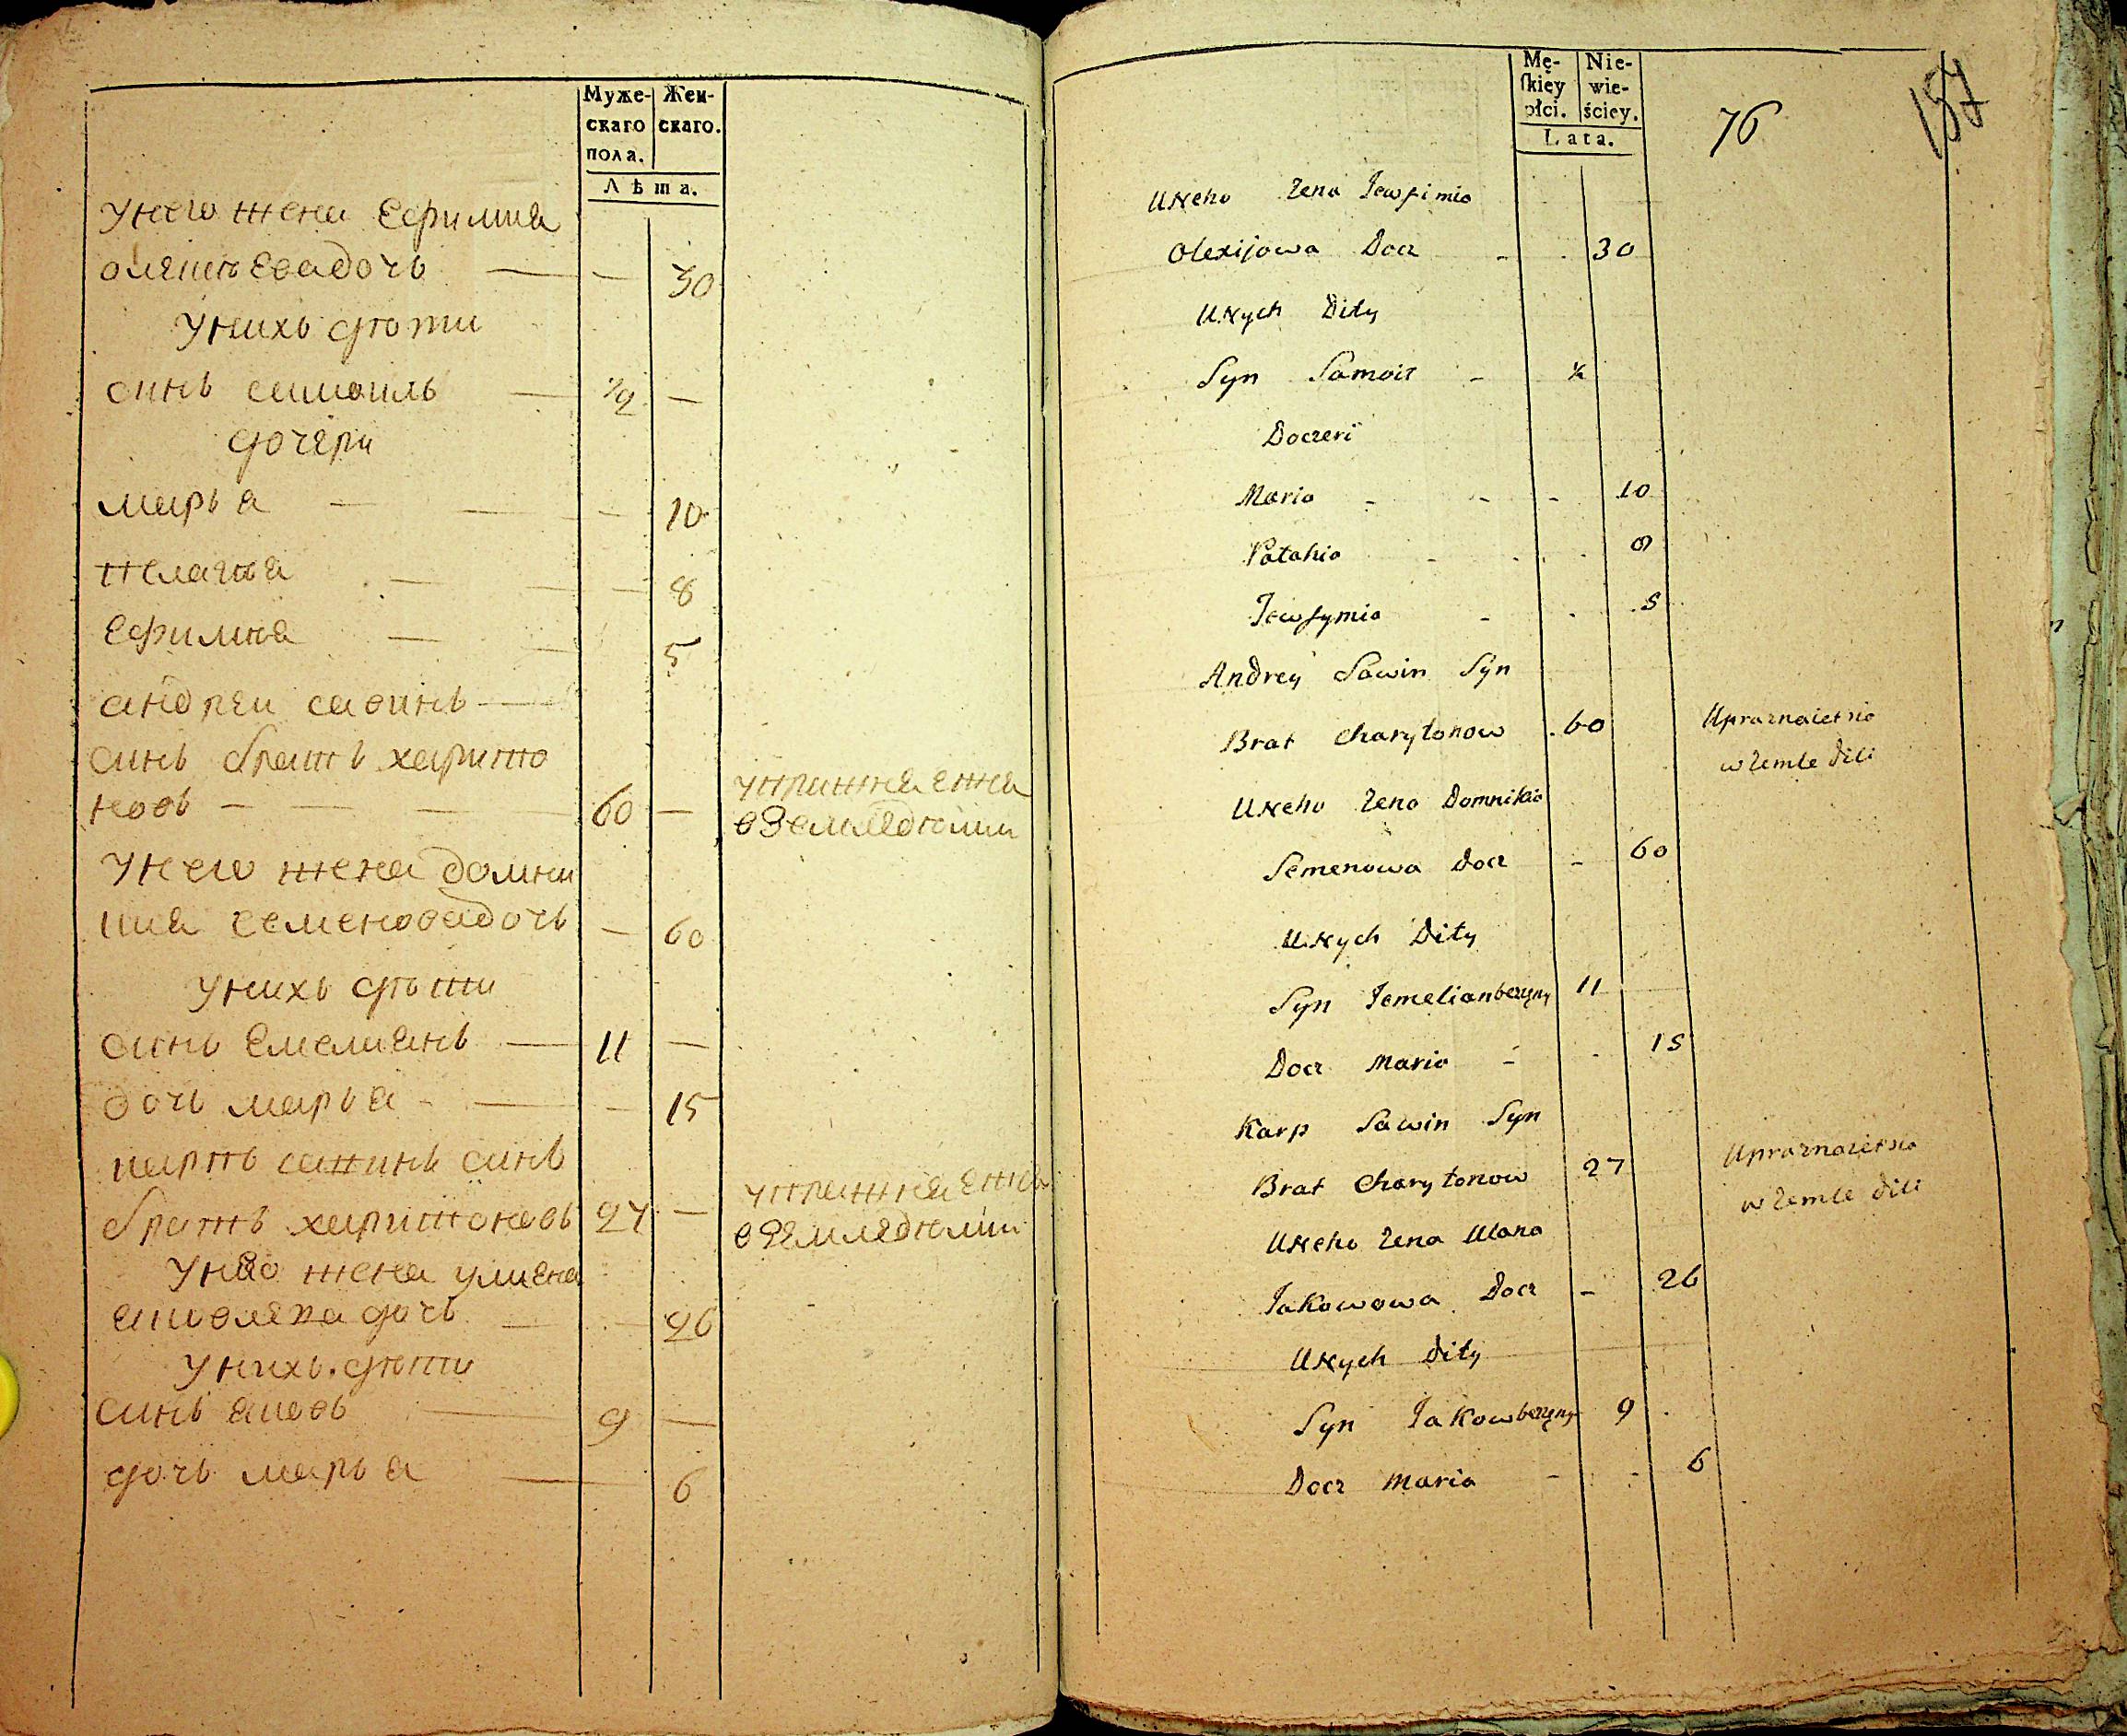 Муже- Жен-
скаго скаго.
пола.
Лѣта.
унего жена Ефимия
олеитьевадочь — — 30
унихъ дѣти
синъ самоилъ — 1/2 —
дочери
марья — — — 10
пелагия — — — 8
Ефимия — — 5
андреи савинъ —
синъ братъ харито
новъ — — — 60 — упражняежа
вЗемлядюлии
унего жена домни
кия семеновадочь — 60
унихъ дѣти
синъ Емелиянъ — 11 —
дочь марья — — — 15
карпъ савинъ синъ
братъ харитоновъ 27 — упражняежа
вЗемледюлии
унево жена улияна
яковлева дочь — — 26
унихъ дѣти
синъ яковъ — 9 —
дочь марья — 6
Mę- Nie-
skiey wie-
płci. ściey.
Lata.
76
157
UNeho Zena Jewfimia
Olexijowa Docz - . 30
UNych Dity
Syn Samoił - ½
Doczeri
Maria - - - 10
Pałahia - . . 8
Jewfymia - . 5
Andrey Sawin Syn
Brat Charytonow . 60 Upraznaietsia
wZemle dili
UNeho Zena Domnikia
Semenowa Docz - 60
UNych Dity
Syn Jemelian bezżęny 11
Docz Maria - . 15
Karp Sawin Syn
Brat Charytonow 27 Upraznaietsia
wZemle dili
UNeho Zena Ulana
Jakowowa Docz - 26
UNych Dity
Syn Jakow bezżęny 9 .
Docz Maria - . - 6